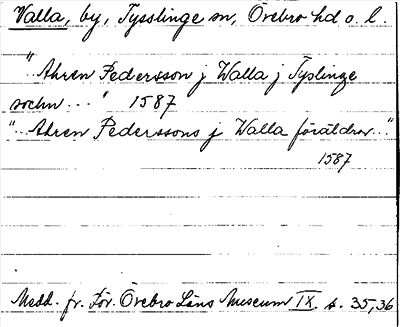 Valla, by, Tysslinge sn, Örebro hd o. l.
"Ahren Pedersson j Walla j Tyslinge
sochn..." 1587
"..Ahren Pederssons j Walla föräldrar..."
1587
Medd. fr. För. Örebro Läns Museum IX. s. 35,36